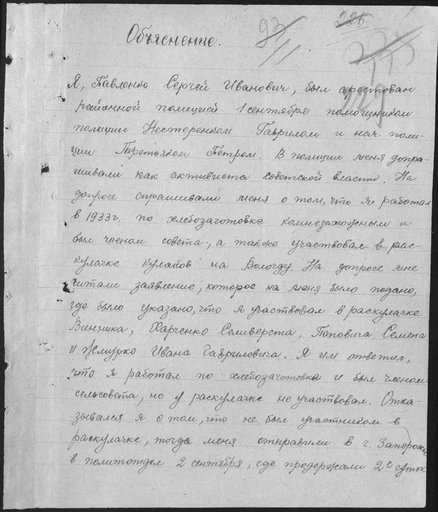 Объяснение.
Я, Павленко Сергей Иванович, был арестован
районной полицией 1 сентября помощником
полиции Нестеренком Гаврилом и нач. поли-
ции Третьяком Петром. В полиции меня допра-
шивали как активиста советской власти. На
допросе спрашивали меня о том, что я работал
в 1933г. по хлебозаготовке комнезаможным и
был членом совета, а также участвовал в рас-
кулачке кулаков на Вологду. На допросе мне
читали заявление, которое на меня было подано,
где было указано, что я участвовал в раскулачке
Харченко Селиверста, Поповича Семена
и Ивана Гавриловича. Я им ответил,
что я работал по хлебозаготовке и был членом
сельсовета, но у раскулачке не участвовал. Отка-
зывался я о том, что не был участником в
раскулачке, тогда меня отправили в г. Запорожье
в политотдел 2 сентября, где продержали 2е суток